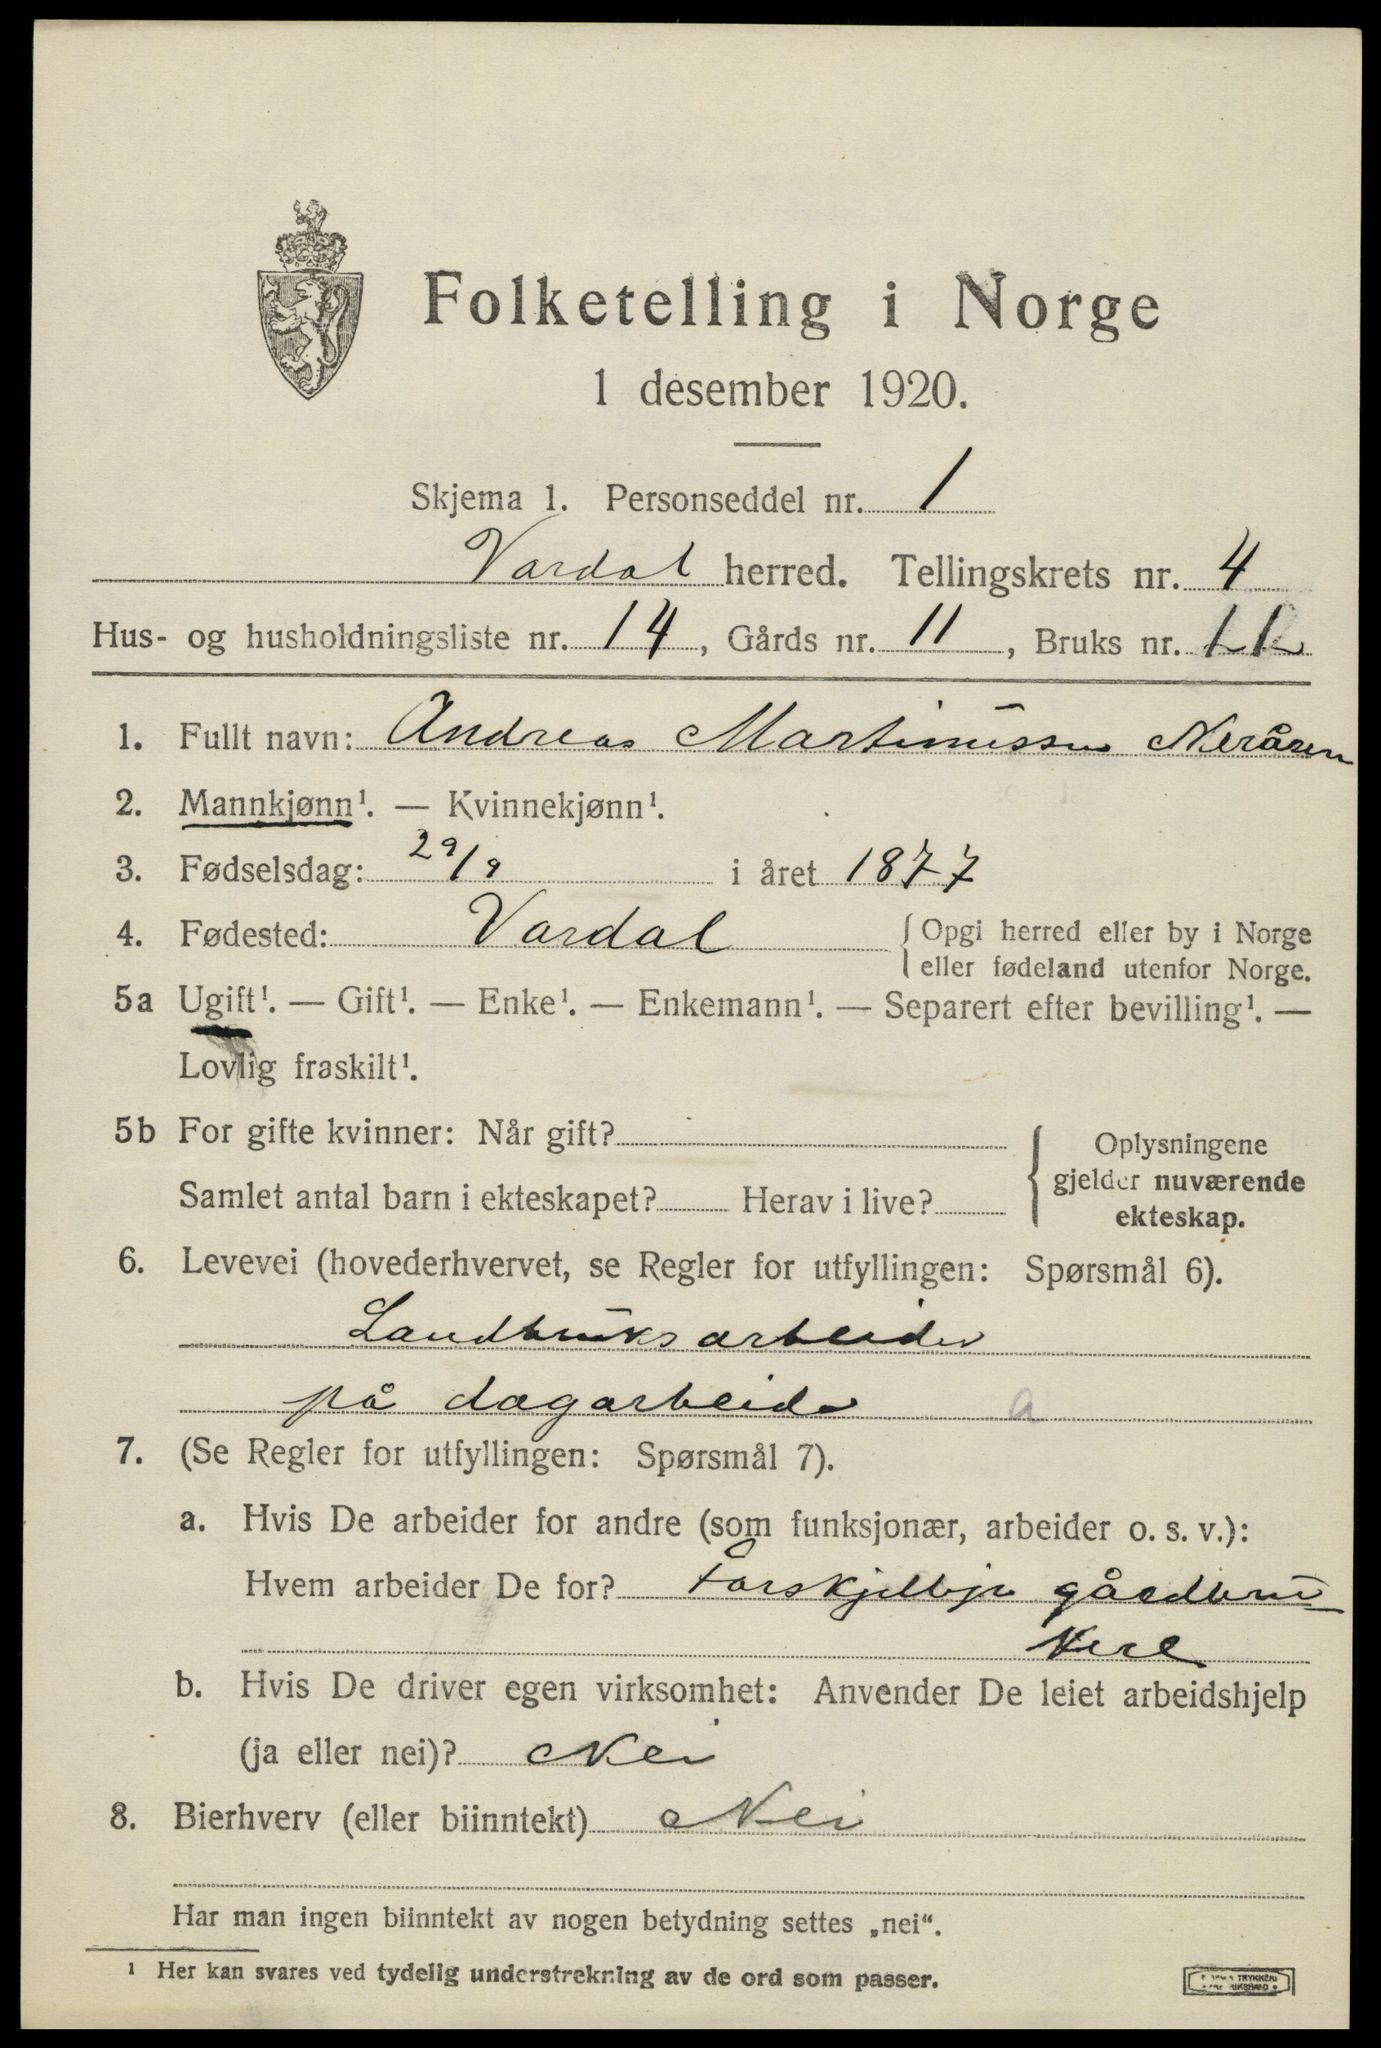 Folketelling i Norge
1 desember 1920.
Skjema 1. Personseddel nr. 1
Vardal herred. Tellingskrets nr. 4
Hus- og husholdningsliste nr. 14, Gårds nr. 11, Bruks nr.
1. Fullt navn: Andreas Martinussen Neråsen
2. Mannkjønn¹. — Kvinnekjønn¹.
3. Fødselsdag: 29/9 i året 1877
4. Fødested: Vardal { Opgi herred eller by i Norge
eller fødeland utenfor Norge.
5a Ugift¹. — Gift¹. — Enke¹. — Enkemann¹. — Separert efter bevilling¹. —
Lovlig fraskilt¹.
5b For gifte kvinner: Når gift? { Oplysningene
gjelder nuværende
Samlet antal barn i ekteskapet? Herav i live? ekteskap.
6. Levevei (hovederhvervet, se Regler for utfyllingen: Spørsmål 6).
Landbruksarbeider
på dagarbeide a
7. (Se Regler for utfyllingen: Spørsmål 7).
a. Hvis De arbeider for andre (som funksjonær, arbeider o. s. v.):
Hvem arbeider De for? Forskjellige gårdbru-
kere
b. Hvis De driver egen virksomhet: Anvender De leiet arbeidshjelp
(ja eller nei)? Nei
8. Bierhverv (eller biinntekt) Nei
Har man ingen biinntekt av nogen betydning settes „nei“.
¹ Her kan svares ved tydelig understrekning av de ord som passer.
TRYKKERI